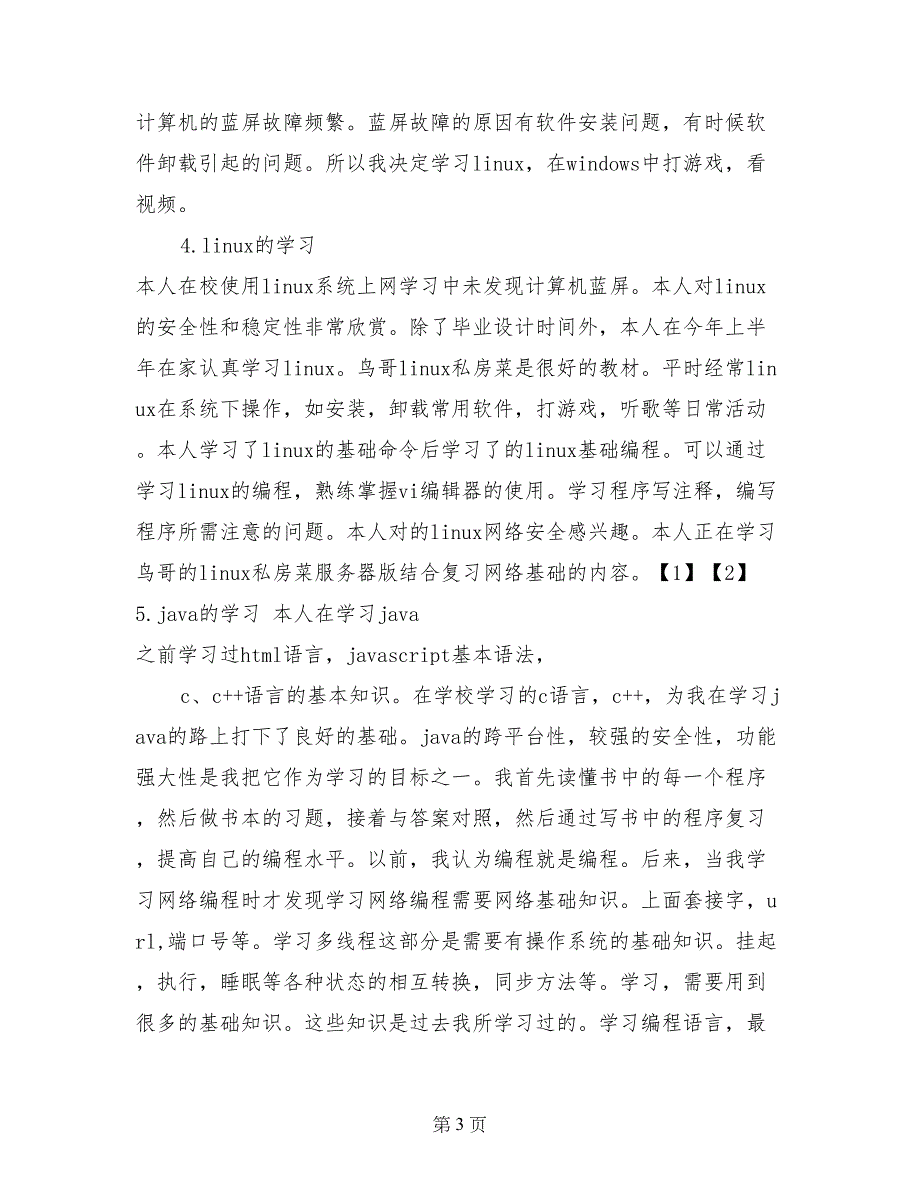 计算机的蓝屏故障频繁。蓝屏故障的原因有软件安装问题，有时候软
件卸载引起的问题。所以我决定学习linux，在windows中打游戏，看
视频。
4.linux的学习
本人在校使用linux系统上网学习中未发现计算机蓝屏。本人对linux
的安全性和稳定性非常欣赏。除了毕业设计时间外，本人在今年上半
年在家认真学习linux。鸟哥linux私房菜是很好的教材。平时经常lin
ux在系统下操作，如安装，卸载常用软件，打游戏，听歌等日常活动
。本人学习了linux的基础命令后学习了的linux基础编程。可以通过
学习linux的编程，熟练掌握vi编辑器的使用。学习程序写注释，编写
程序所需注意的问题。本人对的linux网络安全感兴趣。本人正在学习
鸟哥的linux私房菜服务器版结合复习网络基础的内容。【1】【2】
5.java的学习 本人在学习java
之前学习过html语言，javascript基本语法，
c、c++语言的基本知识。在学校学习的c语言，c++，为我在学习j
ava的路上打下了良好的基础。java的跨平台性，较强的安全性，功能
强大性是我把它作为学习的目标之一。我首先读懂书中的每一个程序
，然后做书本的习题，接着与答案对照，然后通过写书中的程序复习
，提高自己的编程水平。以前，我认为编程就是编程。后来，当我学
习网络编程时才发现学习网络编程需要网络基础知识。上面套接字，u
rl,端口号等。学习多线程这部分是需要有操作系统的基础知识。挂起
，执行，睡眠等各种状态的相互转换，同步方法等。学习，需要用到
很多的基础知识。这些知识是过去我所学习过的。学习编程语言，最
第 3 页